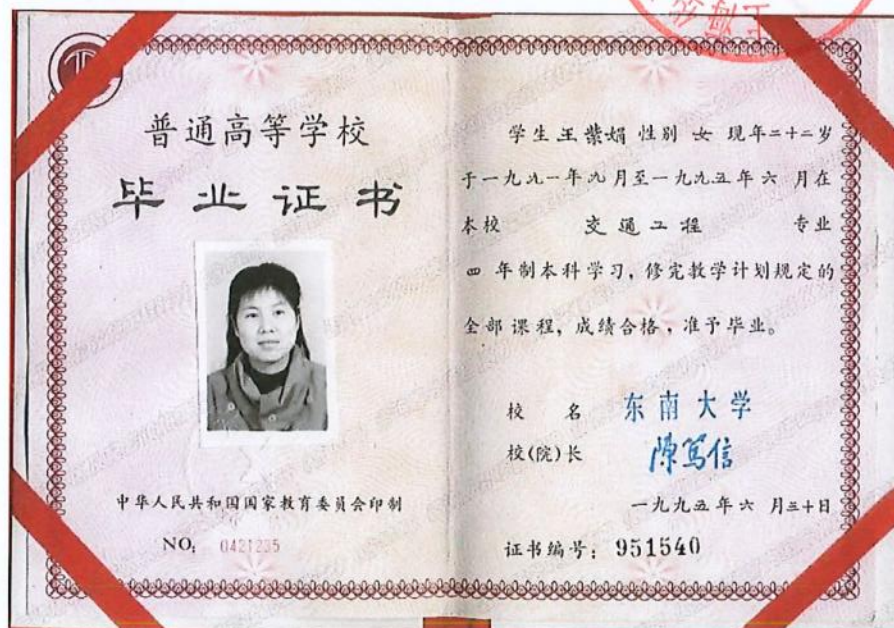 普通高等学校
毕业证书
中华人民共和国国家教育委员会印制
NO: 0421235
学生 王紫娟 性别 女 现年二十二岁
于一九九一年九月至一九九五年六 月在
本校 交通工程 专业
四 年制本科学习，修完教学计划规定的
全部课程，成绩合格，准予毕业。
校 名 东南大学
校(院)长 陈笃信
一九九五年六 月三十日
证书编号：951540